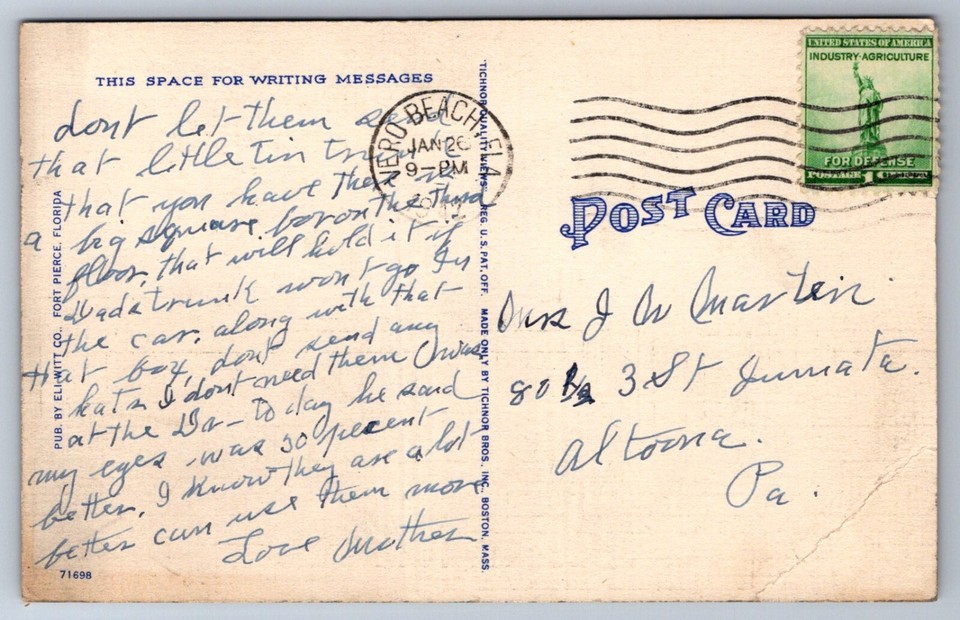 THIS SPACE FOR WRITING MESSAGES
dont let them
that little tin
that you have there in
a big square box on the third
floor, that will hold it if
Dads trunk wont go in
the car. along with that
that box, dont send any
hats I dont need them I was
at the Dr - to day he said
my eyes was 30 pecent
better. I know they are a lot
better can use them more
Love Mother
71698
PUB. BY ELI-WITT CO., FORT PIERCE, FLORIDA
"TICHNOR QUALITY VIEWS" REG. U.S. PAT. OFF. MADE ONLY BY TICHNOR BROS. INC., BOSTON, MASS.
VERO BEACH, FLA
JAN 26
9-PM
UNITED STATES OF AMERICA
INDUSTRY·AGRICULTURE
FOR DEFENSE
POSTAGE 1
POST CARD
Mrs J W Martin
80 1/2 3 St Juniata.
Altoona.
Pa.